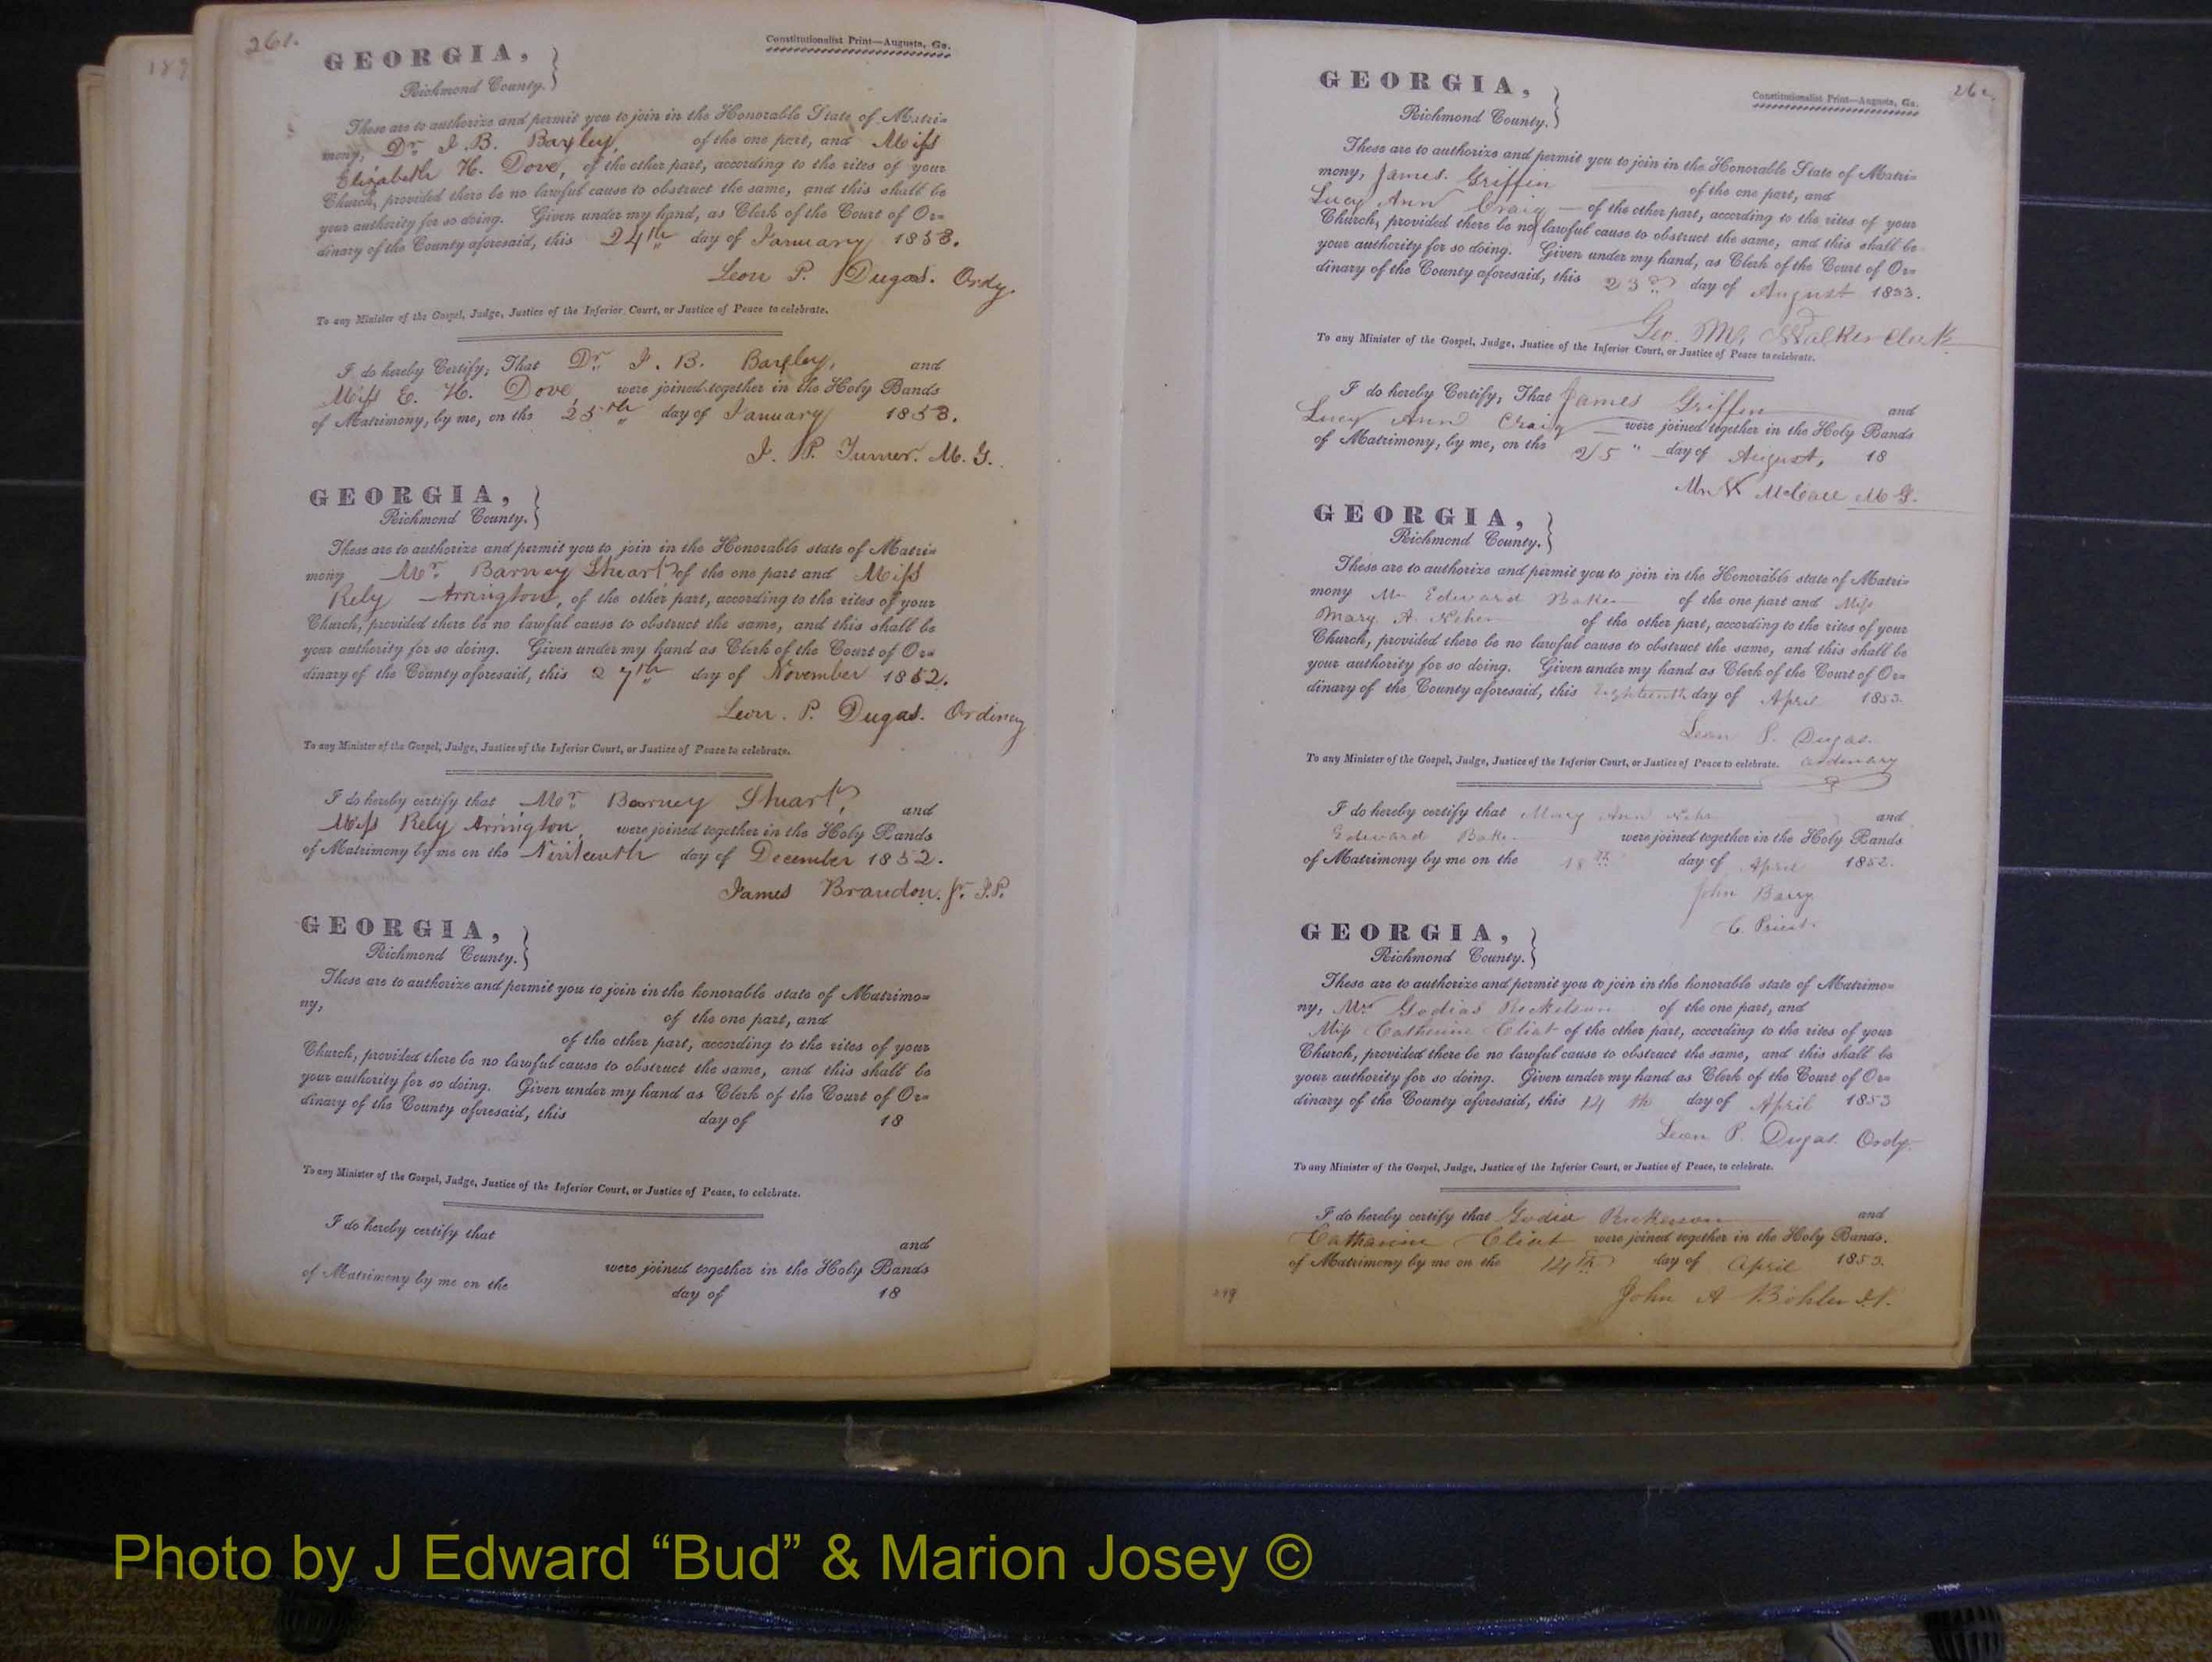 261.
Constitutionalist Print—Augusta, Ga.
GEORGIA,
Richmond County.
These are to authorize and permit you to join in the Honorable State of Matri=
mony, Dr. J. B. Baxley, of the one part, and Miss
Elizabeth H. Dove, of the other part, according to the rites of your
Church, provided there be no lawful cause to obstruct the same, and this shall be
your authority for so doing. Given under my hand, as Clerk of the Court of Or=
dinary of the County aforesaid, this 24th day of January 1853.
Leon P. Dugas. Ordy.
To any Minister of the Gospel, Judge, Justice of the Inferior Court, or Justice of Peace to celebrate.
I do hereby Certify, That Dr. J. B. Baxley, and
Miss E. H. Dove, were joined together in the Holy Bands
of Matrimony, by me, on the 25th day of January 1853.
J. P. Turner. M. G.
GEORGIA,
Richmond County.
These are to authorize and permit you to join in the Honorable state of Matri=
mony Mr. Barney Stuart, of the one part and Miss
Rely Arrington, of the other part, according to the rites of your
Church, provided there be no lawful cause to obstruct the same, and this shall be
your authority for so doing. Given under my hand as Clerk of the Court of Or=
dinary of the County aforesaid, this 27th day of November 1852.
Leon. P. Dugas. Ordinary
To any Minister of the Gospel, Judge, Justice of the Inferior Court, or Justice of Peace to celebrate.
I do hereby certify that Mr. Barney Stuart, and
Miss Rely Arrington, were joined together in the Holy Bands
of Matrimony by me on the Ninteenth day of December 1852.
James Brandon. Jr. J.P.
GEORGIA,
Richmond County.
These are to authorize and permit you to join in the honorable state of Matrimo=
ny, of the one part, and
of the other part, according to the rites of your
Church, provided there be no lawful cause to obstruct the same, and this shall be
your authority for so doing. Given under my hand as Clerk of the Court of Or=
dinary of the County aforesaid, this day of 18
To any Minister of the Gospel, Judge, Justice of the Inferior Court, or Justice of Peace, to celebrate.
I do hereby certify that
and
were joined together in the Holy Bands
of Matrimony by me on the day of 18
262.
Constitutionalist Print—Augusta, Ga.
GEORGIA,
Richmond County.
These are to authorize and permit you to join in the Honorable State of Matri=
mony, James Griffin of the one part, and
Lucy Ann Craig of the other part, according to the rites of your
Church, provided there be no lawful cause to obstruct the same, and this shall be
your authority for so doing. Given under my hand, as Clerk of the Court of Or=
dinary of the County aforesaid, this 23rd day of August 1853.
Geo. M. Walker Clerk
To any Minister of the Gospel, Judge, Justice of the Inferior Court, or Justice of Peace to celebrate.
I do hereby Certify, That James Griffin and
Lucy Ann Craig were joined together in the Holy Bands
of Matrimony, by me, on the 25 " day of August, 18
M. G.
GEORGIA,
Richmond County.
These are to authorize and permit you to join in the Honorable state of Matri=
mony Mr Edward Baker of the one part and Miss
Mary A. of the other part, according to the rites of your
Church, provided there be no lawful cause to obstruct the same, and this shall be
your authority for so doing. Given under my hand as Clerk of the Court of Or=
dinary of the County aforesaid, this Eighteenth day of April 1853.
Leon P. Dugas.
To any Minister of the Gospel, Judge, Justice of the Inferior Court, or Justice of Peace to celebrate. Ordinary
I do hereby certify that Mary Ann and
Edward Baker were joined together in the Holy Bands
of Matrimony by me on the 18th day of April 1852.
John Barry
C. Priest.
GEORGIA,
Richmond County.
These are to authorize and permit you to join in the honorable state of Matrimo=
ny, Mr Godias of the one part, and
Miss Catherine Cliat of the other part, according to the rites of your
Church, provided there be no lawful cause to obstruct the same, and this shall be
your authority for so doing. Given under my hand as Clerk of the Court of Or=
dinary of the County aforesaid, this 14 th day of April 1853
Leon P. Dugas. Ordy.
To any Minister of the Gospel, Judge, Justice of the Inferior Court, or Justice of Peace, to celebrate.
I do hereby certify that Rickerson and
Catharine Cliat were joined together in the Holy Bands.
of Matrimony by me on the 14th day of April 1853.
John A Bohler J.P.
Photo by J Edward “Bud” & Marion Josey ©